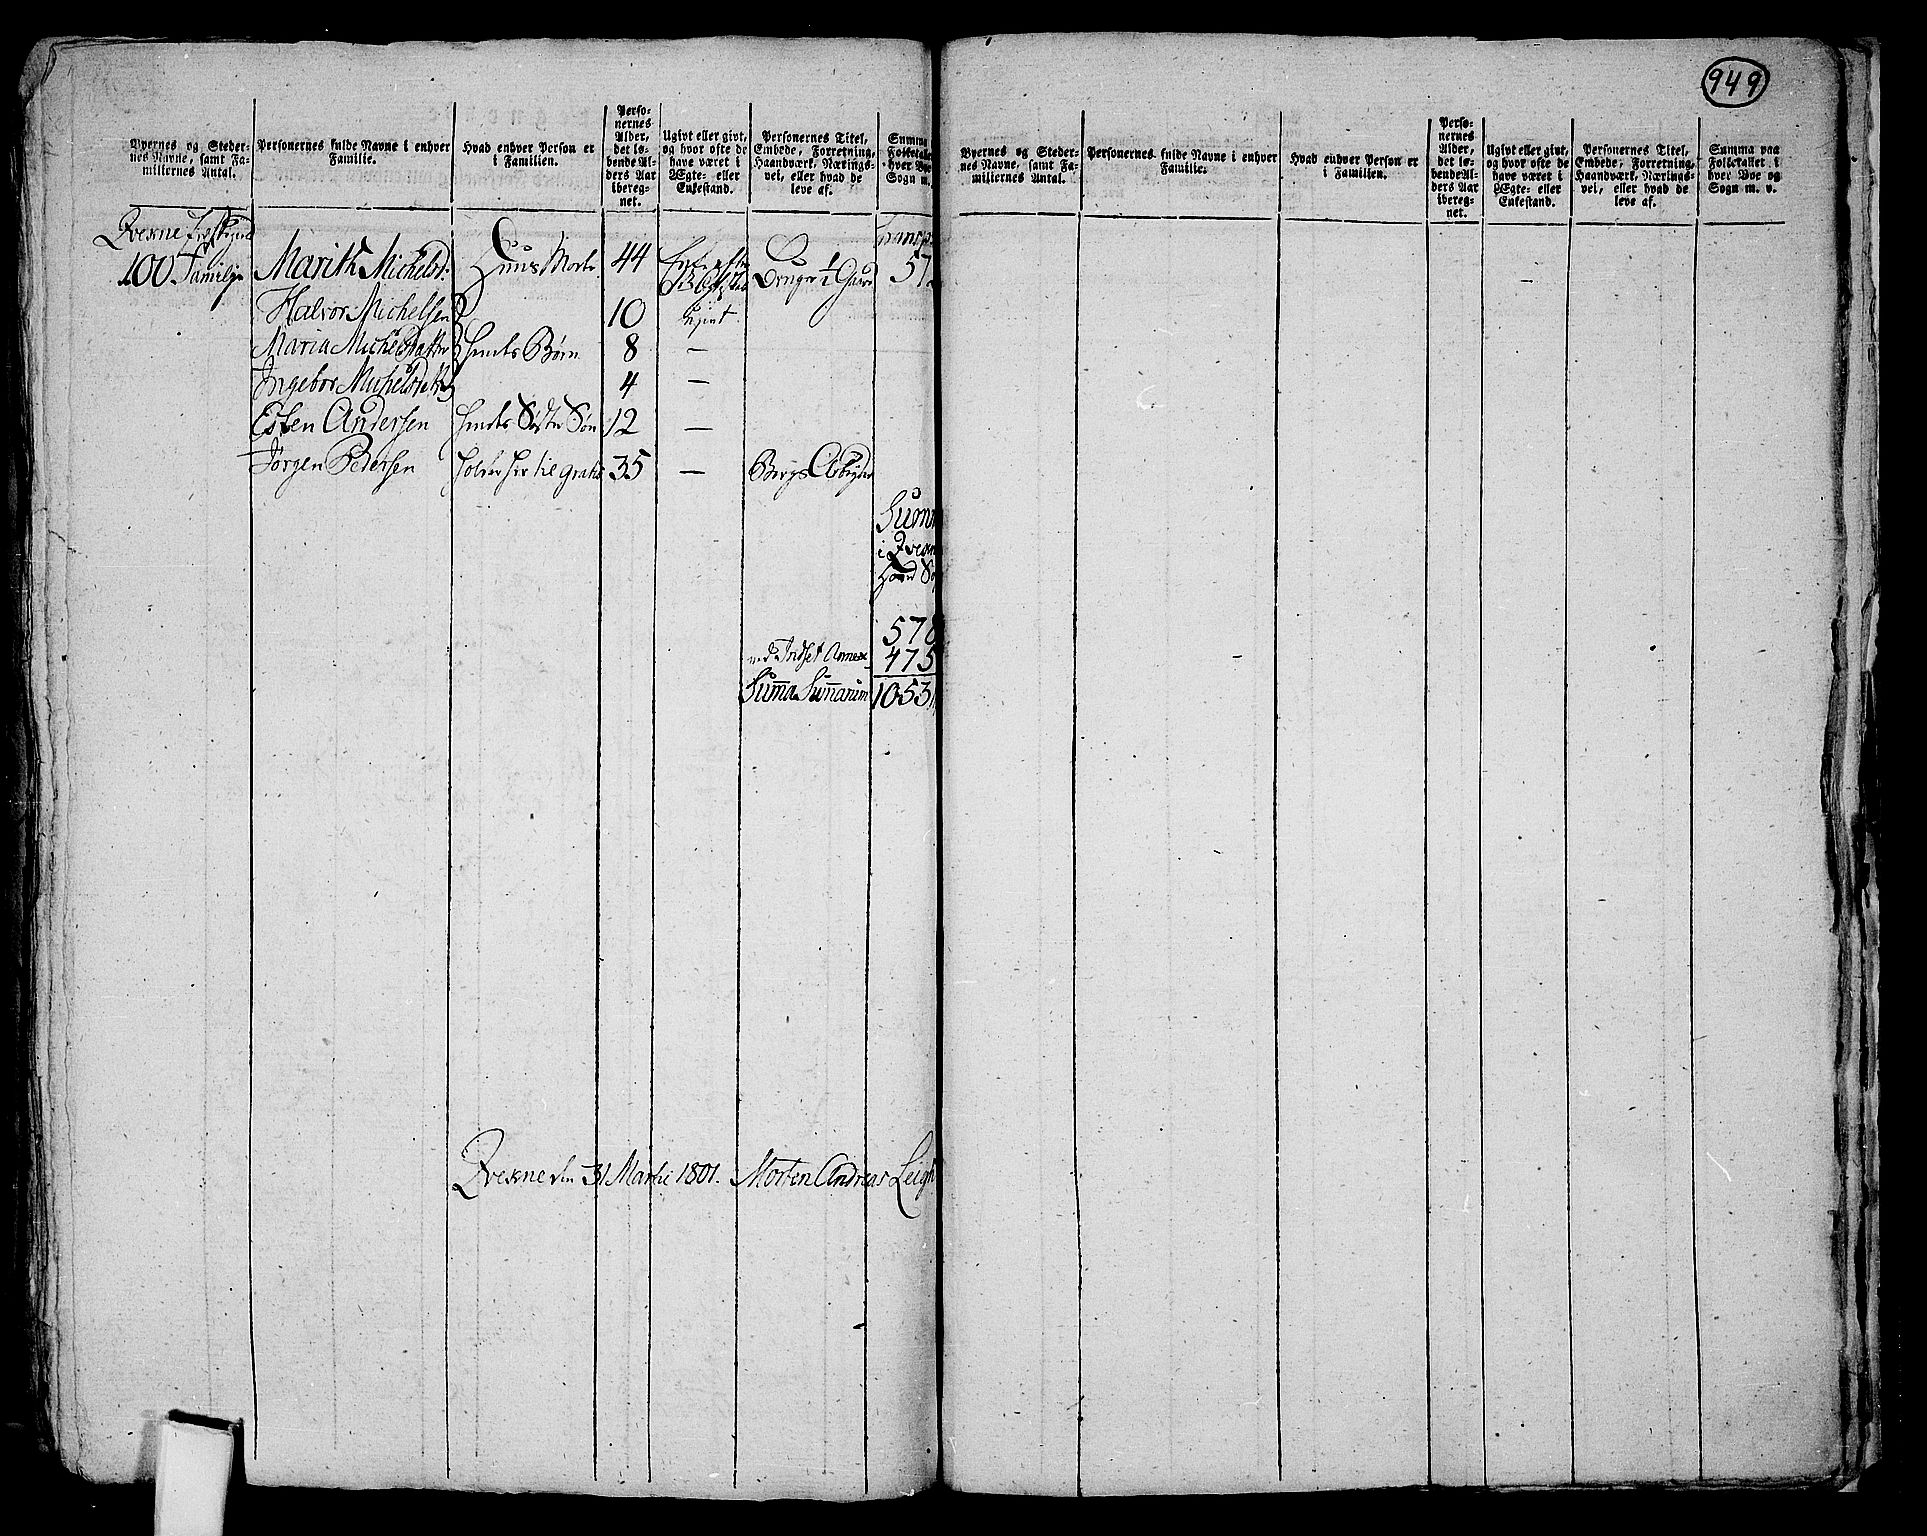 949
Byernes og Steder-
nes Navne, samt Fa-
miliernes Antal.
Personernes fulde Navne i enhver
Familie.
Hvad enhver Person er
i Familien.
Perso-
nernes
Alder,
det lø-
bende Al-
ders Aar
ibereg-
net.
Ugivt eller givt,
og hvor ofte de
have været i
Ægte- eller
Enkestand.
Personernes Titel,
Embede, Forretning,
Haandværk, Nærings-
vei, eller hvad de
leve af.
Summa
Folketalle
hver Bye
Sogn m.
Qvekne
Transp
100 Familje Marith Michelsd: Huus Moder 44 Enke efter Bruger 1/2 Gaard 572
Halvor Michelsen 10 Ugivt
Maria Michelsdatter hendes Børn 8 —
Ingebor Michelsdatter 4 —
Esten Andersen hendes Søster Søn 12 —
Jørgen Pedersen holder her til gratis 35 — Bergs Arbeyder
Sum
i Qvekn
Hoved So
578
med Indset Annex 475
Summa Summarum 1053
Qvekne den 31 Martii 1801. Morten Andreas Leigh
Byernes og Steder-
nes Navne, samt Fa-
miliernes Antal.
Personernes fulde Navne i enhver
Familie.
Hvad enhver Person er
i Familien.
Perso-
nernes
Alder,
det lø-
bende Al-
ders Aar
ibereg-
net.
Ugivt eller givt,
og hvor ofte de
have været i
Ægte- eller
Enkestand.
Personernes Titel,
Embede, Forretning,
Haandværk, Nærings-
vei, eller hvad de
leve af.
Summa paa
Folketallet i
hver Bye og
Sogn m. v.